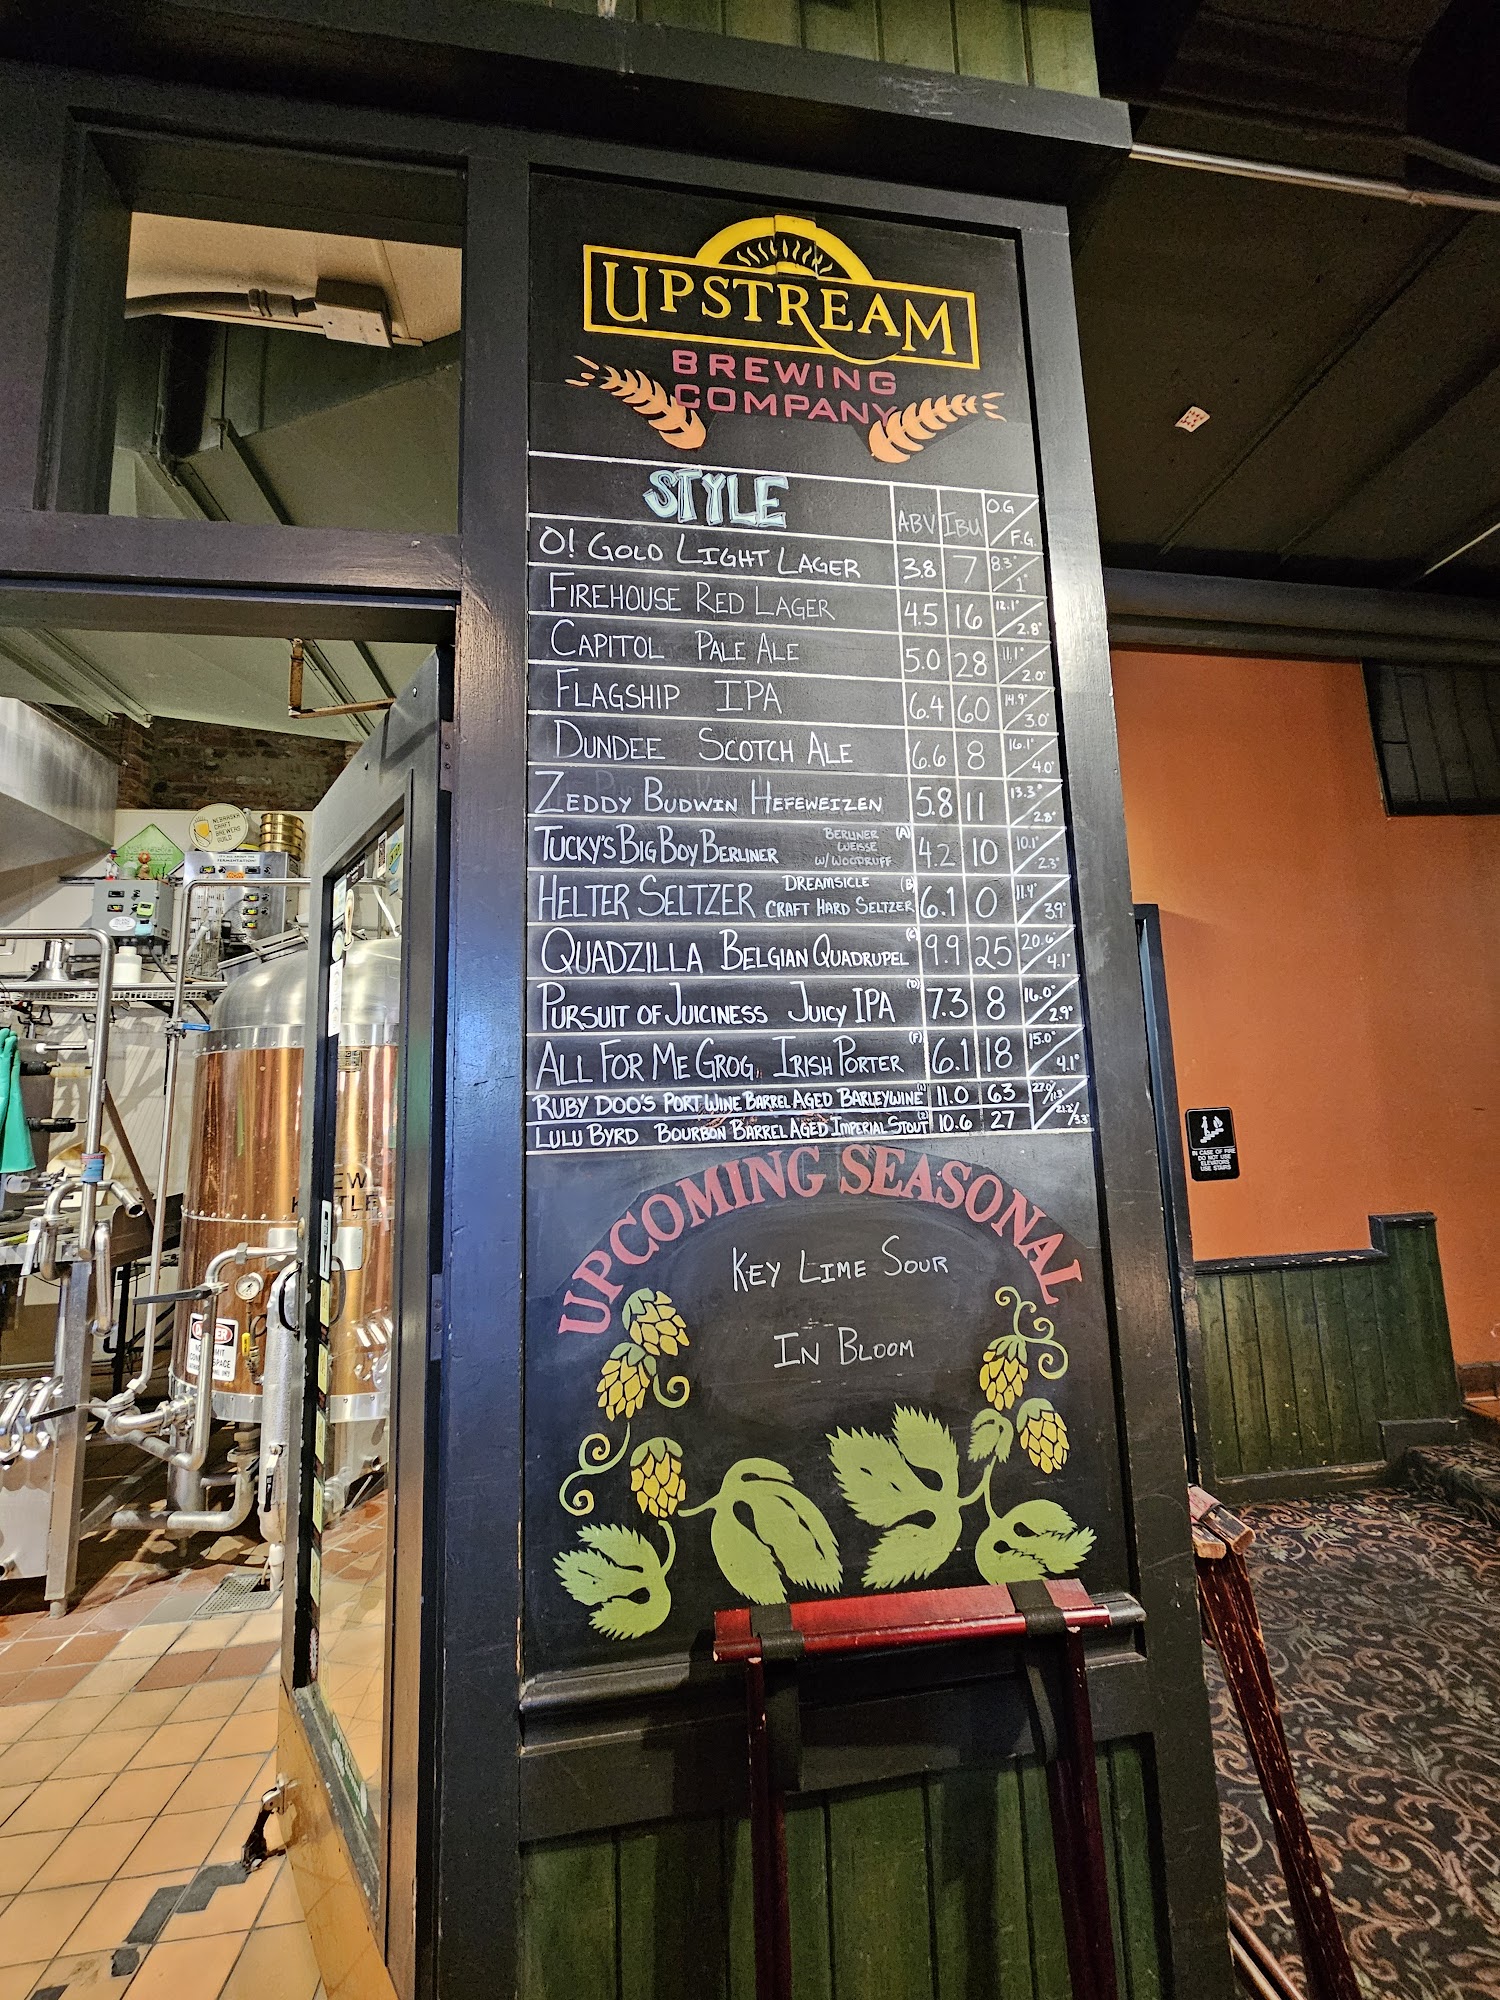 UPSTREAM
BREWING
COMPANY
STYLE ABV IBU O.G / F.G.
O! GOLD LIGHT LAGER 3.8 7 8.3° / 1°
FIREHOUSE RED LAGER 4.5 16 12.1° / 2.8°
CAPITOL PALE ALE 5.0 28 11.1° / 2.0°
FLAGSHIP IPA 6.4 60 14.9° / 3.0°
DUNDEE SCOTCH ALE 6.6 8 16.1° / 4.0°
ZEDDY BUDWIN HEFEWEIZEN 5.8 11 13.3° / 2.8°
TUCKY'S BIG BOY BERLINER BERLINER WEISSE W/ WOODRUFF (A) 4.2 10 10.1° / 2.3°
HELTER SELTZER DREAMSICLE CRAFT HARD SELTZER (B) 6.1 0 11.4° / 3.9°
QUADZILLA BELGIAN QUADRUPEL (C) 9.9 25 20.6° / 4.1°
PURSUIT OF JUICINESS JUICY IPA (D) 7.3 8 16.0° / 2.9°
ALL FOR ME GROG IRISH PORTER (F) 6.1 18 15.0° / 4.1°
RUBY DOO'S PORT WINE BARREL AGED BARLEYWINE (1) 11.0 63
LULU BYRD BOURBON BARREL AGED IMPERIAL STOUT (2) 10.6 27
UPCOMING SEASONAL
KEY LIME SOUR
IN BLOOM
NEBRASKA
CRAFT
BREWERS
GUILD
FERMENTATION
DANGER
SPACE
IN CASE OF FIRE
DO NOT USE
ELEVATORS
USE STAIRS